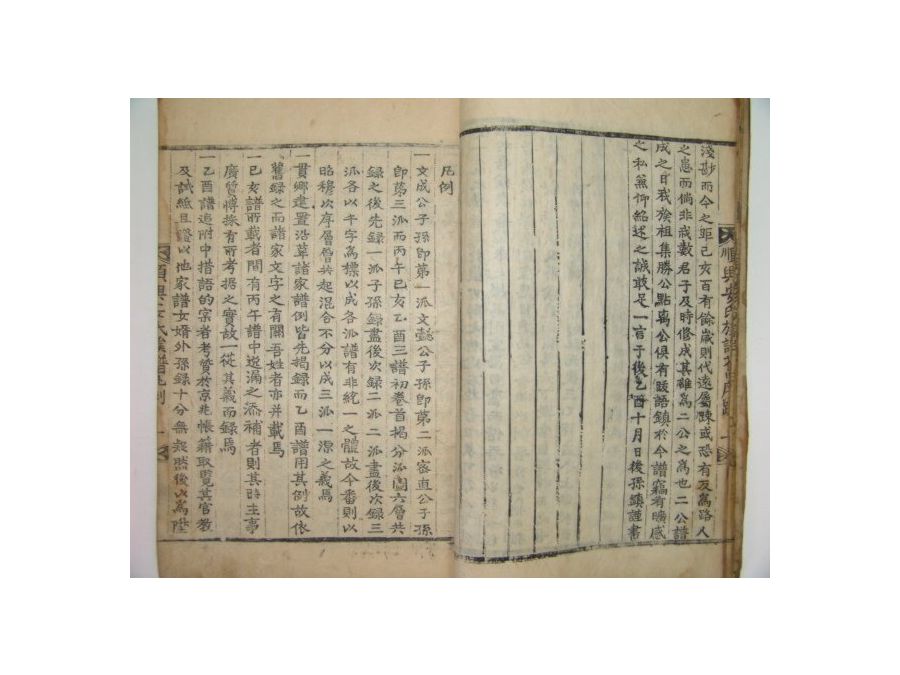 淺尠而今之距己亥百有餘歲則代遠屬踈或恐有反爲路人
之患而倘非我數君子及時修成其離爲二公之爲也二公譜
成之日我族祖集勝公點禹公俱有跋語鎭於今譜竊有曠感
之私兼仰紹述之誠敢足一言于後乙酉十月日後孫鎭謹書
順興安氏族譜
凡例
一文成公子孫卽第一派文懿公子孫卽第二派密直公子孫
卽第三派而丙午己亥乙酉三譜初卷首揭分派圖六層共
錄之後先錄一派子孫錄盡後次錄二派二派盡後次錄三
派各以千字爲標以成各派譜有非統一之體故今番則以
昭穆次序層層共起混合不分以成三派一源之義焉
一貫鄉建置沿革諸家譜例皆先揭錄而乙酉譜用其例故依
舊錄之而諸譜家文字之有關吾姓者亦幷載焉
一己亥譜所載者間有丙午譜中遺漏之添補者則其時主事
廣質博採有所考據之實故一從其義而錄焉
一乙酉譜追附中措語的宗者考質於京兆帳籍取覽其官敎
及試紙且證以他家譜女婿外孫錄十分無疑然後以爲陞
順興安氏族譜凡例 一